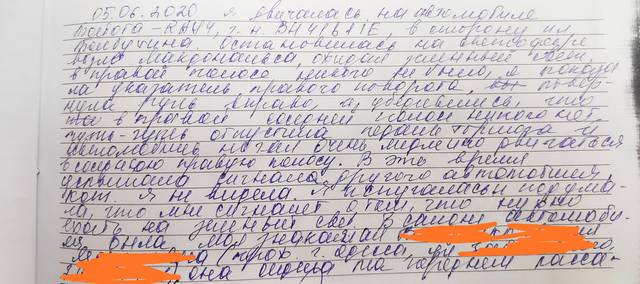 05.06.2020 я двигалась на автомобиле
Тойота-RAV4, г. н. ВН4161ІЕ, в сторону пл.
Толбухина. Остановилась на светофоре
возле Макдональса, ожидая зеленый свет.
в правой полосе никого не было, я показа
ла указатель правого поворота, повер-
нула руль вправо, и, убедившись, что
в правой соседней полосе никого нет,
чуть-чуть отпустила педаль тормоза и
автомобиль начал очень медленно двигаться
в соседнюю правую полосу. В это время
услышала сигнал другого автомобиля,
кот. я не видела. Я испугалась и подума-
ла, что мне сигналят о том, что нужно
ехать на зеленый свет. В салоне автомоби-
ля была моя
(прож. г. Одесса,
она сидела на переднем пасса-